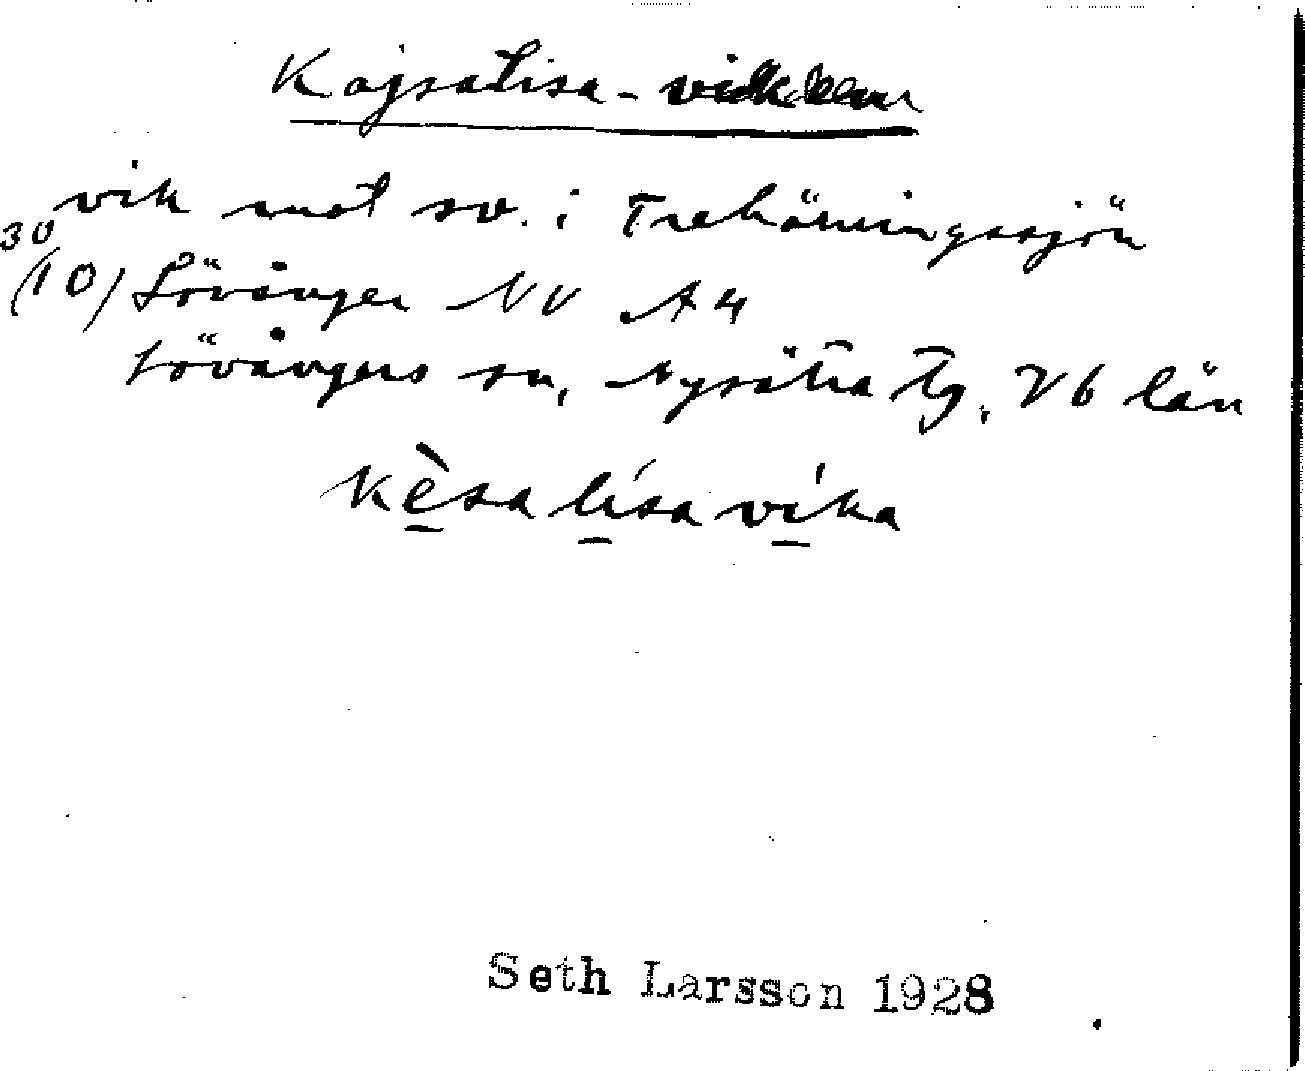 Kajsalisa-viken
vik mot sv. i Trehörningssjön
30
(10) Lövånger NV A4
Lövångers sn, Nysätra tg. Vb län
kèsa lísa víka
Seth Larsson 1928